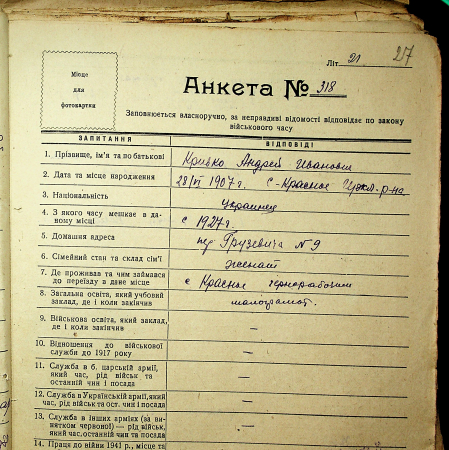 27
Літ. 21
Місце
для
фотокартки
Анкета № 318
Заповнюється власноручно, за неправдиві відомості відповідає по закону
військового часу
ЗАПИТАННЯ ВІДПОВІДІ
1. Прізвище, ім'я та по батькові Андрей Иванович
2. Дата та місце народження 28/VI 1907г. с-Красное р-на
3. Національність украинец
4. З якого часу мешкає в да-
ному місці с 1927г.
5. Домашня адреса пер Грузевича №9
6. Сімейний стан та склад сім'ї женат
7. Де проживав та чим займався
до переїзду в дане місце с Красное чернорабочим
8. Загальна освіта, який учбовий
заклад, де і коли закінчив малограмот.
9. Військова освіта, який заклад,
де і коли закінчив —
10. Відношення до військової
служби до 1917 року —
11. Служба в б. царській армії,
який час, рід військ та
останній чин і посада —
12. Служба в Українській армії, який
час, рід військ та ост. чин і посада —
13. Служба в інших арміях (за ви-
нятком червоної) — рід військ,
який час, останній чин та посада —
14. Праця до війни 1941 р., місце та